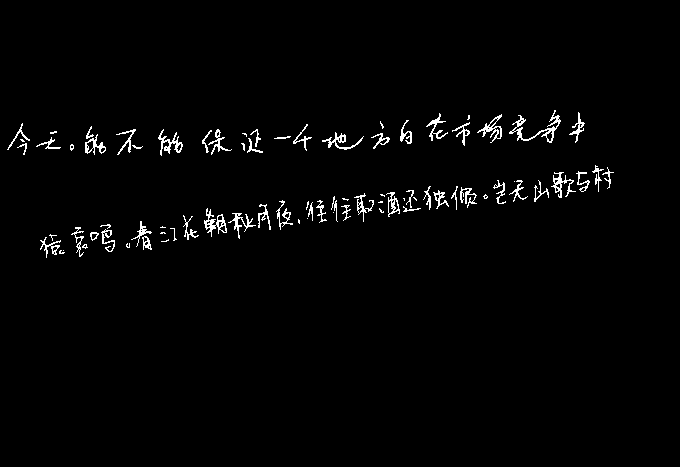 今天。能不能保证一个地方白在市场竞争中
猿哀鸣。春江花朝秋月夜,往往取酒还独倾。岂无山歌与村